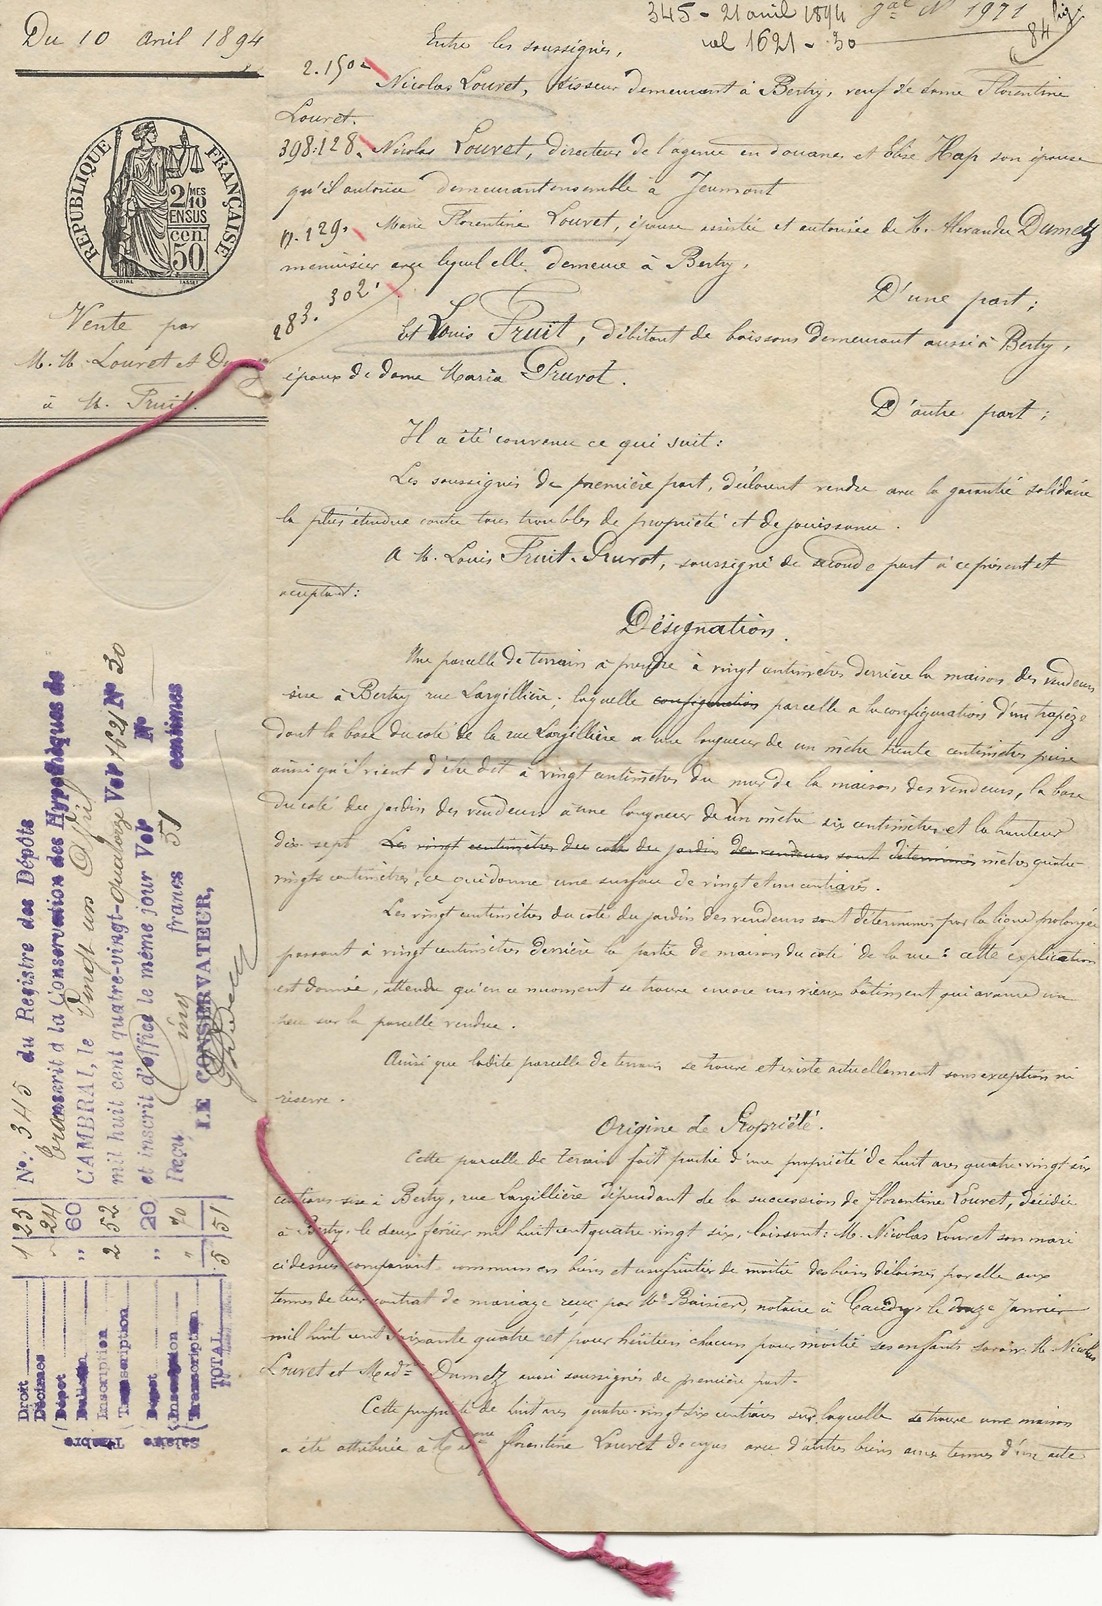 Du 10 avril 1894
345 - 21 avril 1894 gal N° 1971
vol 1621 - 30
84
RÉPUBLIQUE FRANÇAISE
2/10 MES
EN SUS
50 cen.
Vente par
M.M. Louvet et Du
à M. Fruit.
Entre les soussignés,
2.150
Nicolas Louvet, tisseur demeurant à Bertry, veuf de dame Florentine
Louvet.
398.128. Nicolas Louvet, directeur de l'agence en douanes et Elise Hap son épouse
qu'il autorise demeurant ensemble à Jeumont
129. Marie Florentine Louvet, épouse assistée et autorisée de M. Alexandre Dumetz
menuisier avec lequel elle demeure à Bertry.
D'une part;
283. 302.
Et Louis Fruit, débitant de boissons demeurant aussi à Bertry,
époux de dame Maria Pruvot.
D'autre part;
Il a été convenu ce qui suit:
Les soussignés de première part, déclarent vendre avec la garantie solidaire
la plus étendue contre tous troubles de propriété et de jouissance.
A M. Louis Fruit-Pruvot, soussigné de seconde part à ce présent et
acceptant:
Désignation.
Une parcelle de terrain à prendre à vingt centimètres derrière la maison des vendeurs
sise à Bertry rue Largillière, laquelle configuration parcelle a la configuration d'un trapèze
dont la base du côté de la rue Largillière a une longueur de un mètre trente centimètres prise
ainsi qu'il vient d'être dit à vingt centimètres du mur de la maison des vendeurs, la base
du côté du jardin des vendeurs a une longueur de un mètre six centimètres et la hauteur
dix-sept Les vingt centimètres du coté du jardin des vendeurs sont déterminés mètres quatre-
vingts centimètres, ce qui donne une surface de vingt et un centiares.
Les vingt centimètres du coté du jardin des vendeurs sont déterminés par la ligne prolongée
passant à vingt centimètres derrière la partie de maison du coté de la rue: cette explication
est donnée, attendu qu'en ce moment se trouve encore un vieux bâtiment qui avance un
peu sur la parcelle vendue.
Ainsi que ladite parcelle de terrain se trouve et existe actuellement sans exception ni
réserve.
Origine de Propriété.
Cette parcelle de terrain fait partie d'une propriété de huit ares quatre-vingt six
centiares sise à Bertry, rue Largillière dépendant de la succession de Florentine Louvet, décédée
à Bertry, le deux février mil huit cent quatre-vingt six, laissant: M. Nicolas Louvet son mari
ci dessus comparant commun en biens et usufruitier de moitié des biens délaissés par elle aux
termes de leur contrat de mariage reçu par Me Boisier, notaire à Caudry, le douze Janvier
mil huit cent soixante quatre et pour héritiers chacun pour moitié ses enfants savoir: M. Nicolas
Louvet et Made Dumetz aussi soussignés de première part.
Cette propriété de huit ares quatre-vingt six centiares sur laquelle se trouve une maison
a été attribuée à florentine Louvet de cujus avec d'autres biens aux termes d'un acte
N°: 345 du Registre des Dépôts
Transcrit à la Conservation des Hypothèques de
CAMBRAI, le Vingt un Avril
mil huit cent quatre-vingt-quatorze Vol 1621 N° 30
et inscrit d'office le même jour Vol N°
Reçu Cinq francs 51 centimes
LE CONSERVATEUR,
Droit 1 25
Décimes 24
Dépôt
Bulletin
Inscription
Transcription
Timbre
„ 60
2 52
Dépôt
Inscription
Transcription
Salaire
„ 20
„
„ 70
TOTAL 5 51